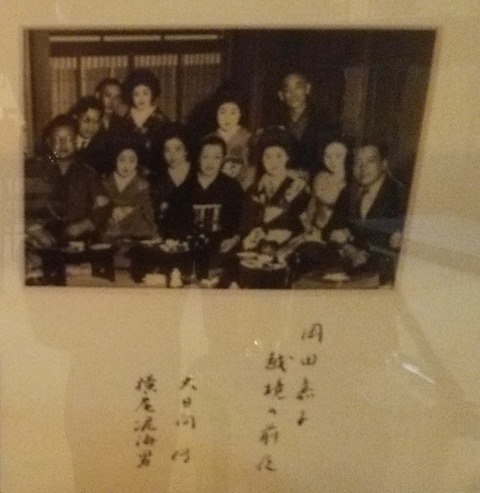 岡田嘉子
越境の前夜
大日向 傳
横尾泥海男